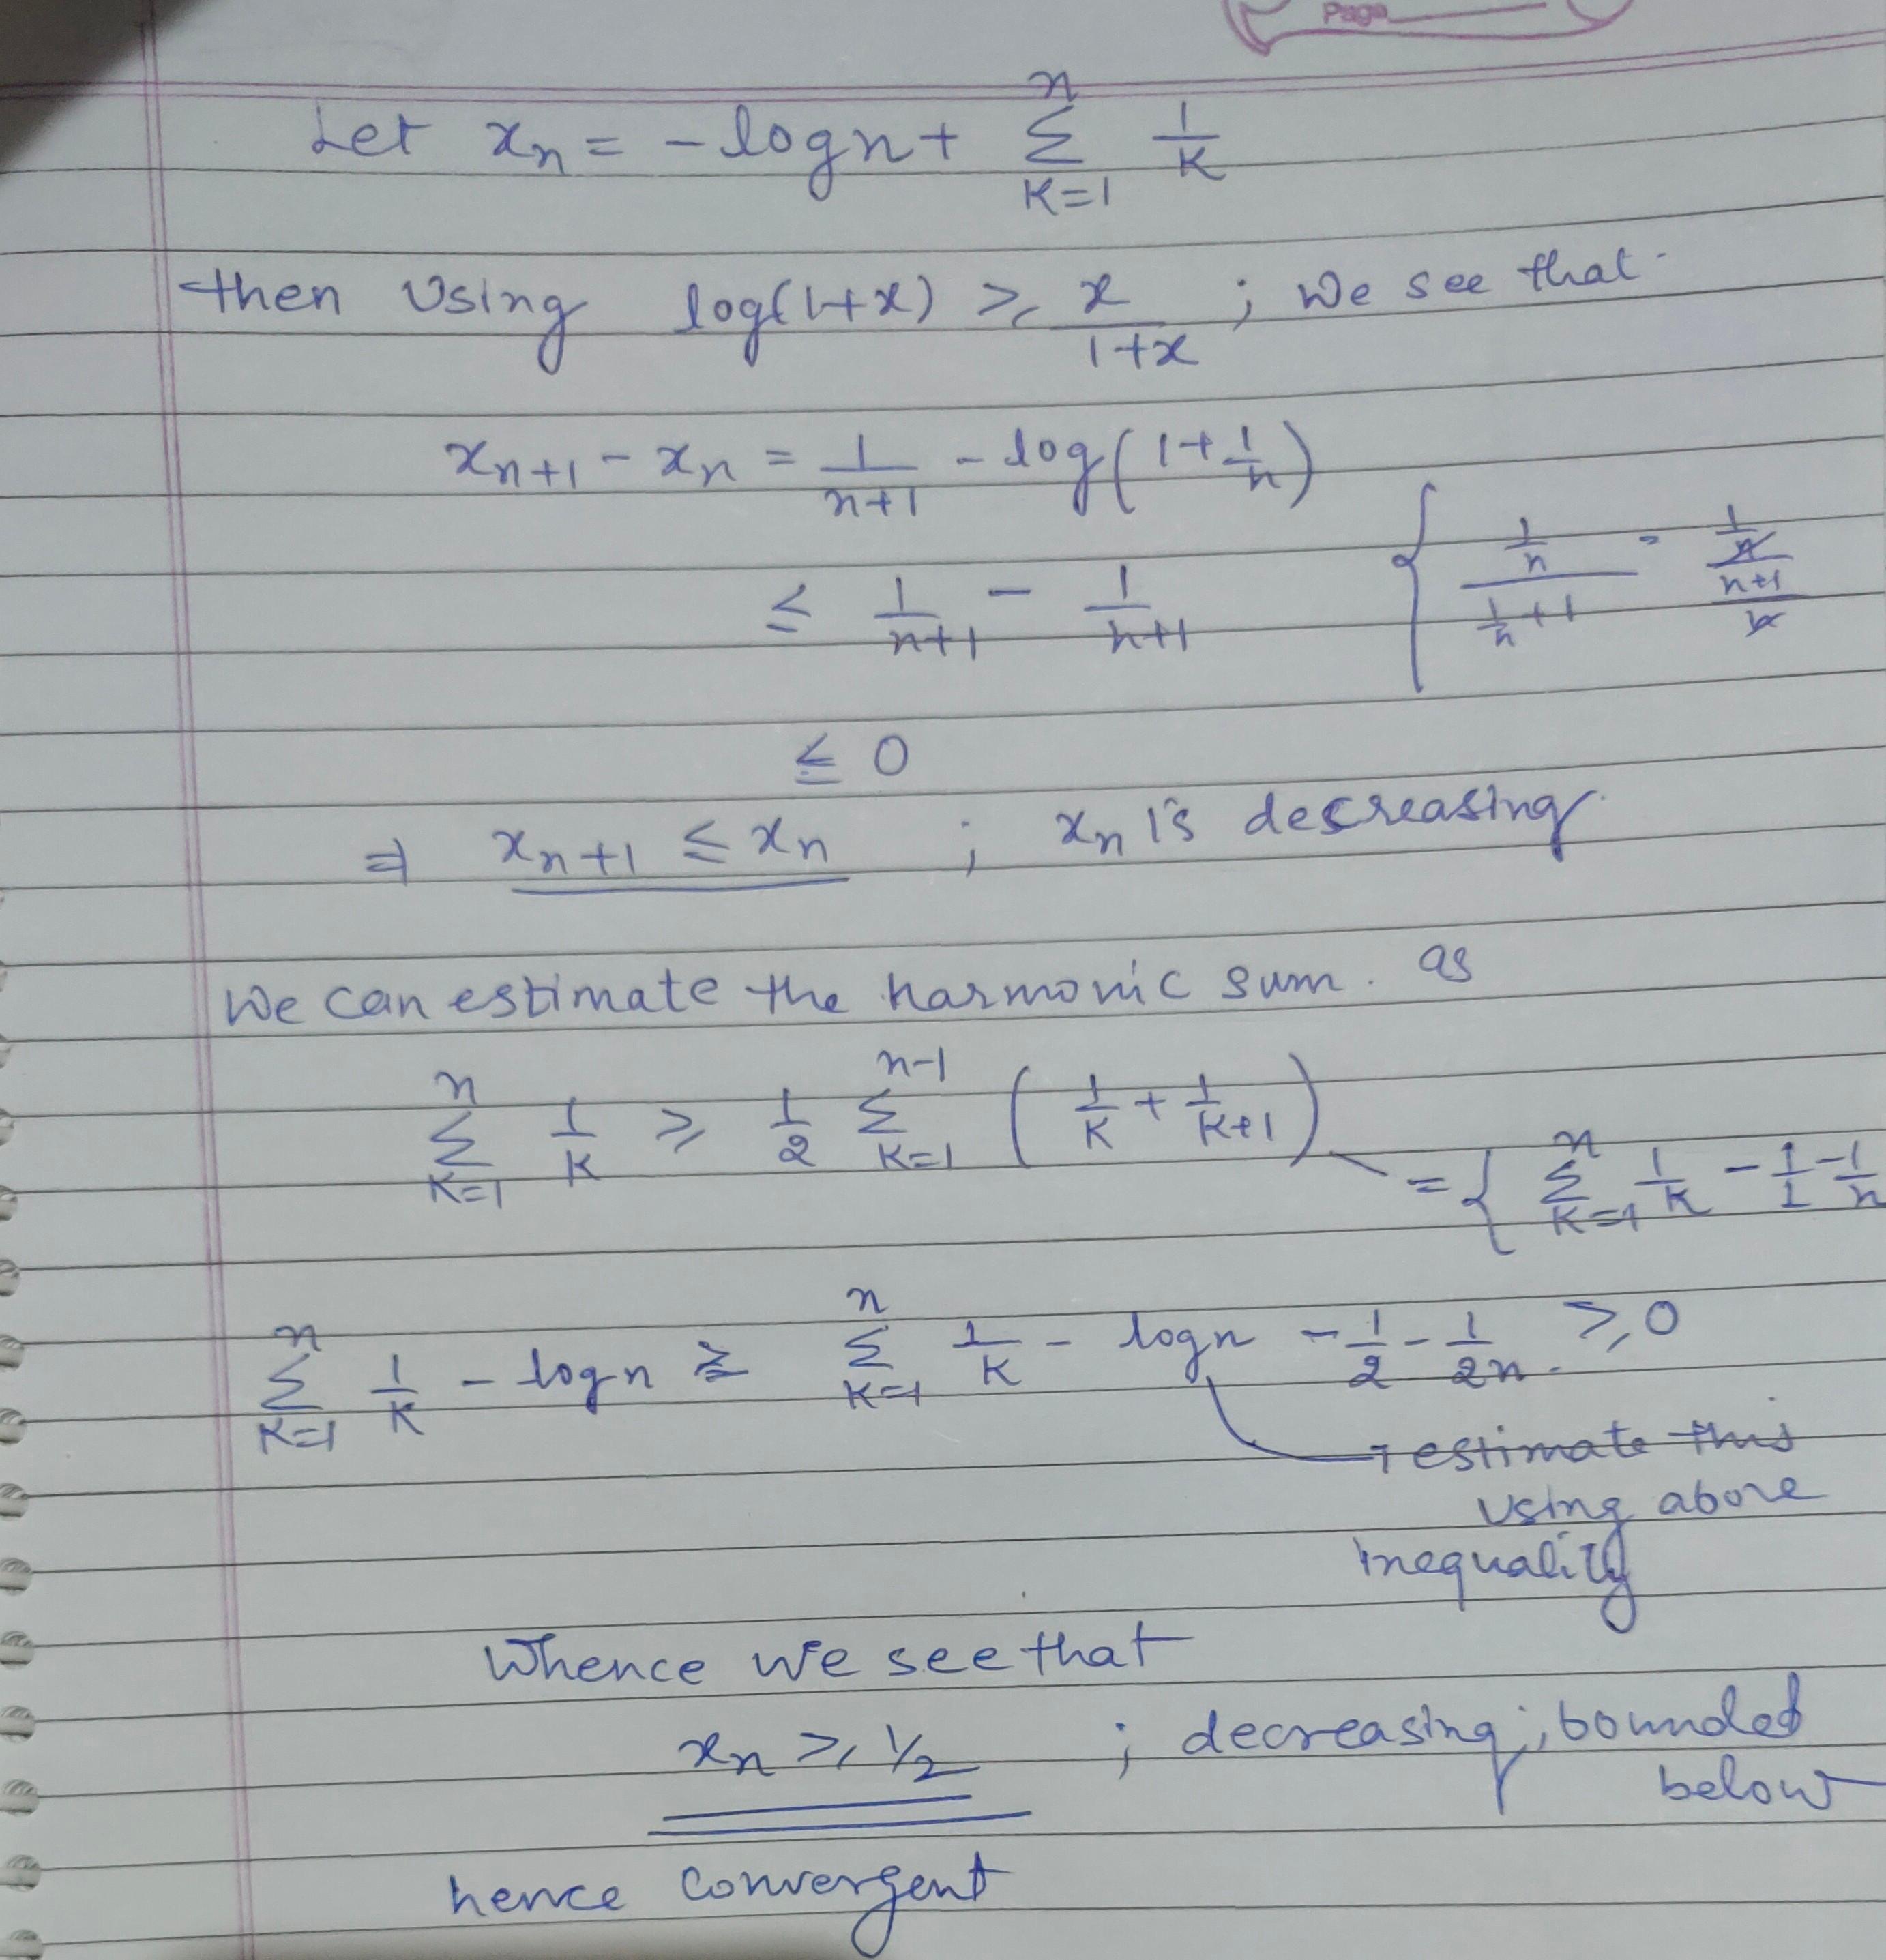 Page
Let xₙ = - log n + Σ_{K=1}^{n} 1/K
then Using log(1+x) ⩾ x/(1+x) ; We see that
xₙ₊₁ - xₙ = 1/(n+1) - log(1 + 1/n)
≤ 1/(n+1) - 1/(n+1) { (1/n)/(1/n + 1) = (1/n)/((n+1)/n)
≤ 0
⇒ xₙ₊₁ ≤ xₙ ; xₙ is decreasing
We can estimate the harmonic sum. as
Σ_{K=1}^{n} 1/K ⩾ 1/2 Σ_{K=1}^{n-1} (1/K + 1/(K+1)) = { Σ_{K=1}^{n} 1/K - 1/1 - 1/n
Σ_{K=1}^{n} 1/K - log n ≥ Σ_{K=1}^{n} 1/K - log n - 1/2 - 1/2n. ⩾ 0
→ estimate this
using above
inequality
Whence we see that
xₙ ⩾ 1/2 ; decreasing; bounded
below
hence convergent